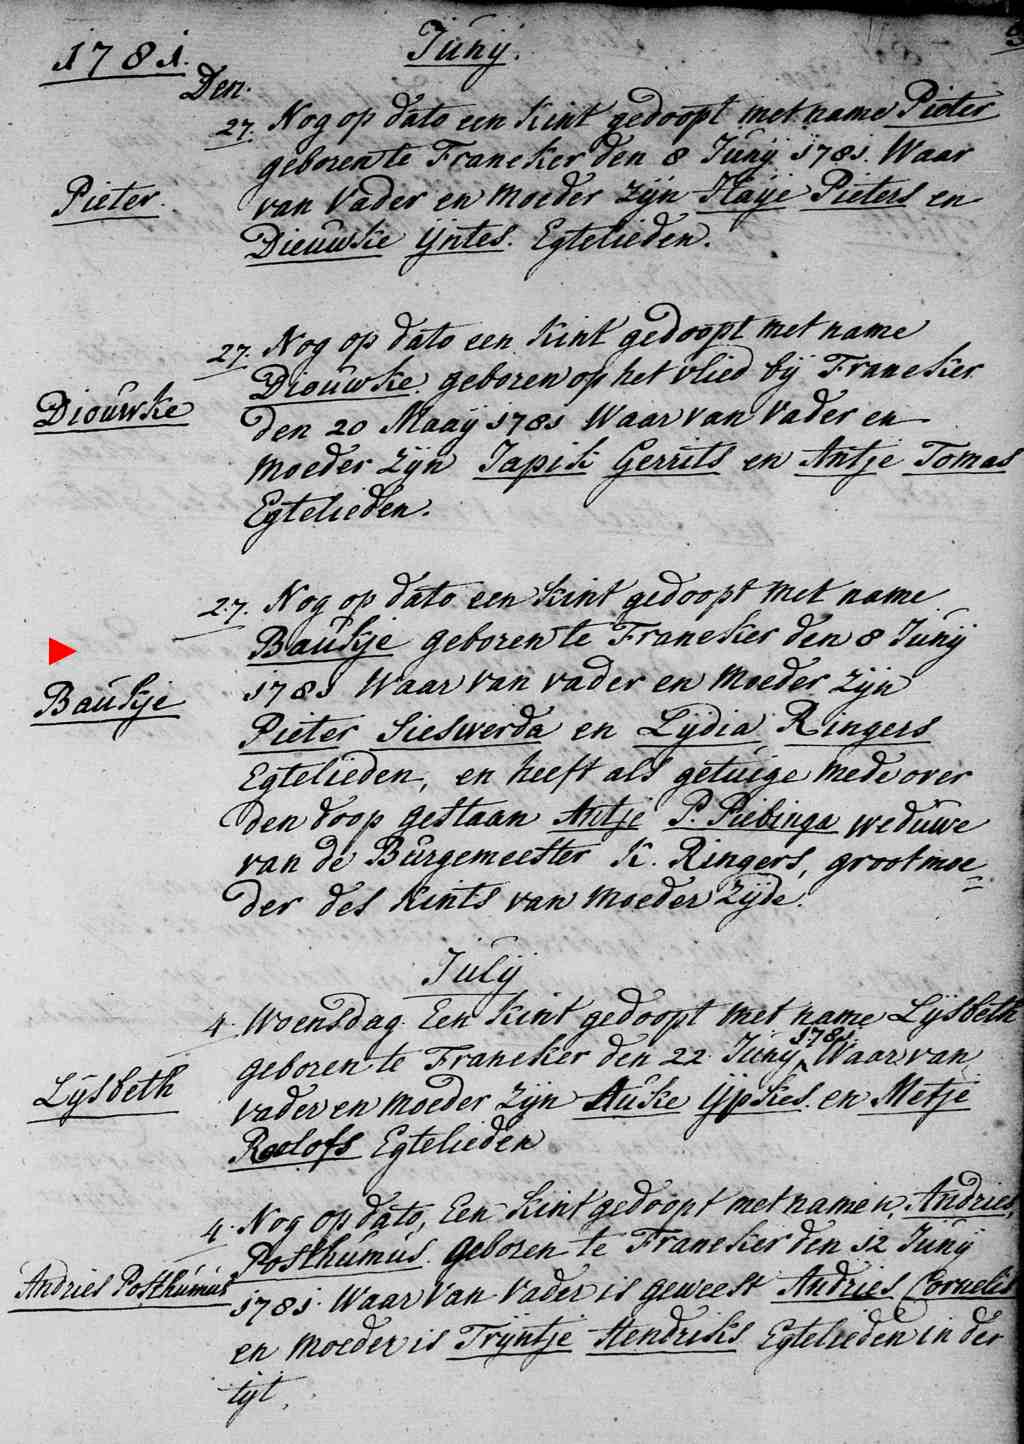 1781.
Junÿ.
Den.
27. Nog op dato een kint gedoopt met name Pieter
geboren te Franeker den 8 Junÿ 1781. Waar
Pieter.
van Vader en Moeder zÿn Haÿe Pieters en
Dieuwke Ÿntes. Egtelieden.
27. Nog op dato een kint gedoopt met name
Diouwke. geboren op het vlied bÿ Franeker
Diouwke
den 20 Maaÿ 1781 Waar van Vader en
Moeder zÿn Japik Gerrits en Antje Tomas
Egtelieden.
27. Nog op dato een kint gedoopt met name
Baukje geboren te Franeker den 8 Junÿ
Baukje
1781 Waar van vader en Moeder zÿn
Pieter Sieswerda en Lÿdia Ringers
Egtelieden, en heeft als getuige mede over
den doop gestaan Antje P. Piebinga weduwe
van de Burgemeester K. Ringers, grootmoe=
der des kints van moeder zÿde.
Julÿ
4. Woensdag. Een kint gedoopt met name Lÿsbeth
geboren te Franeker den 22 Junÿ 1781. Waar van
Lÿsbeth
vader en Moeder zÿn Auke Ÿpkes. en Metje
Roelofs Egtelieden
4. Nog op dato, Een kint gedoopt met namen, Andries,
Posthumus. geboren te Franeker den 12 Junÿ
Andries Posthumus
1781. Waar van Vader is geweest Andries Cornelis
en Moeder is Trÿntje Hendriks Egtelieden in der
tÿt.